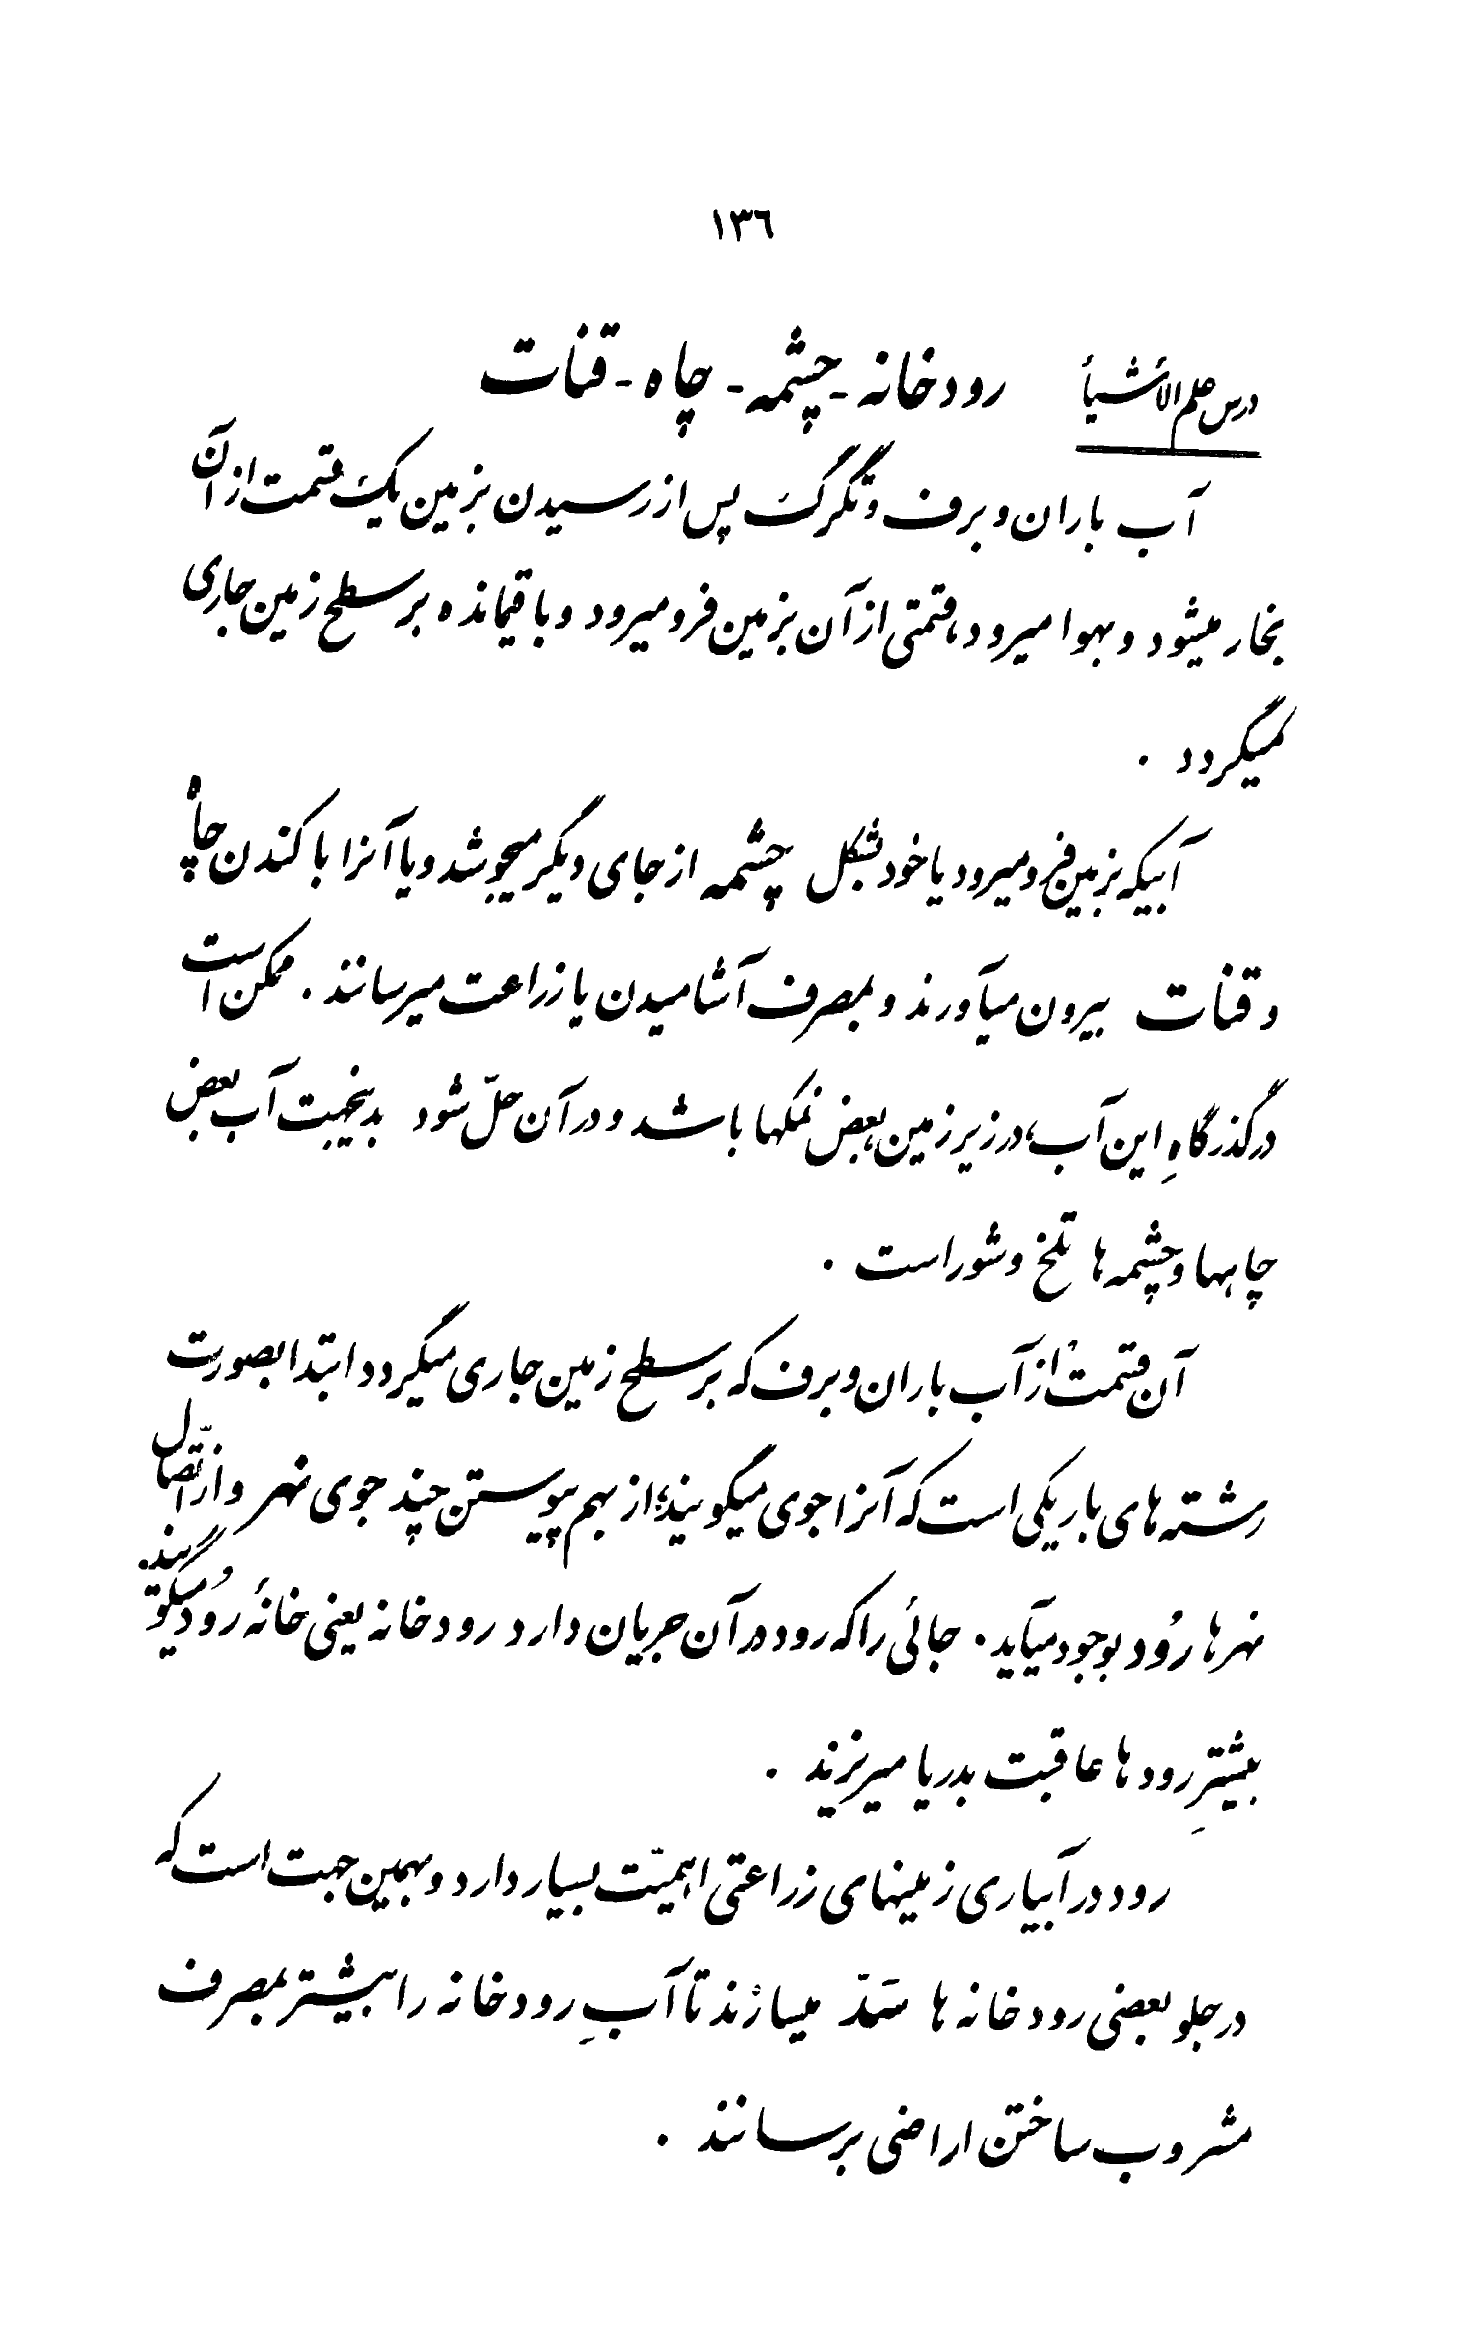 ۱۳۶
درس علم الأشیاء رودخانه - چشمه - چاه - قنات
آب باران و برف و تگرگ پس از رسیدن بزمین یک قسمت از آن
بخار میشود و بهوا میرود، قسمتی از آن بزمین فرو میرود و باقیمانده بر سطح زمین جاری
میگردد .
آبیکه بزمین فرو میرود یا خود بشکل چشمه از جای دیگر میجوشد و یا آنرا با کندن چاه
و قنات بیرون میآورند و بمصرف آشامیدن یا زراعت میرسانند . ممکن است
در گذرگاهِ این آب، در زیر زمین، بعض نمکها باشد و در آن حلّ شود بدینجهت آب بعض
چاهها و چشمه ها تلخ و شور است .
آن قسمت از آب باران و برف که بر سطح زمین جاری میگردد ابتدا بصورت
رشته های باریکی است که آنرا جوی میگویند؛ از بهم پیوستن چند جوی نهر و از اتّصال
نهرها رُود بوجود میآید . جائی را که رود در آن جریان دارد رودخانه یعنی خانهٔ رُود میگویند .
بیشترِ رودها عاقبت بدریا میریزند .
رود در آبیاری زمینهای زراعتی اهمیّت بسیار دارد و بهمین جهت است که
در جلو بعضی رودخانه ها سَدّ میسازند تا آبِ رودخانه را بیشتر بمصرف
مشروب ساختن اراضی برسانند .